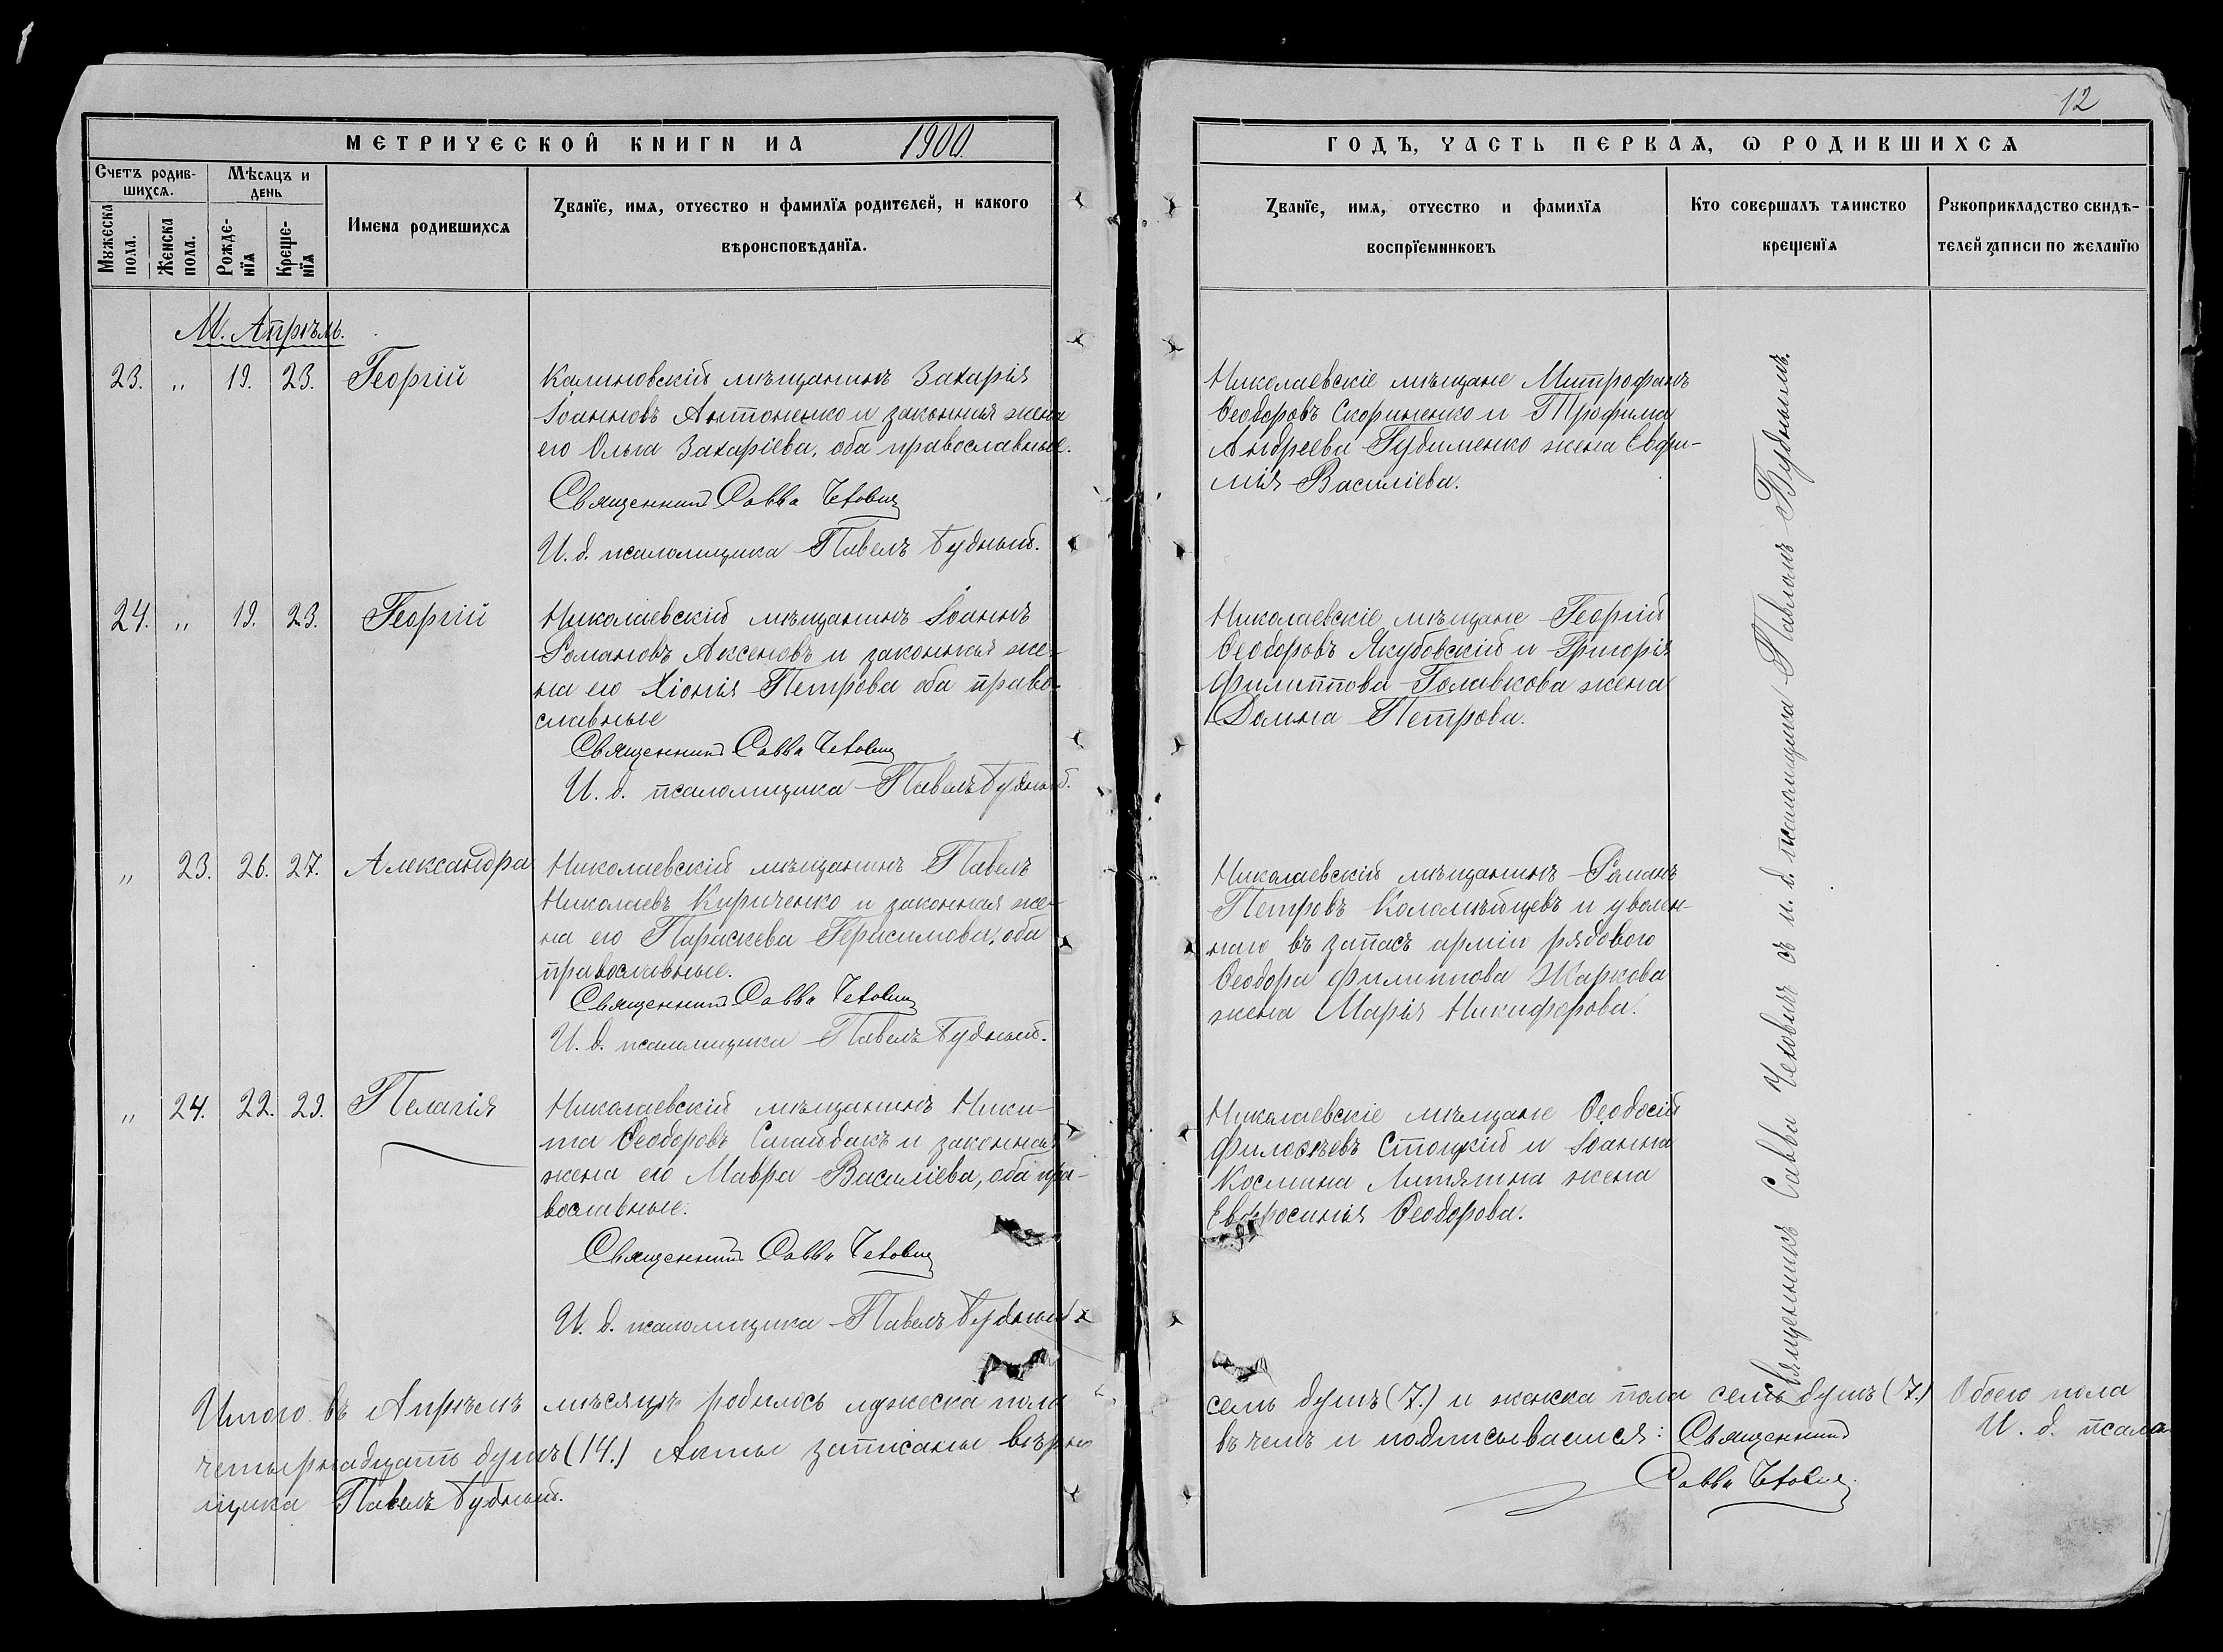 12
МЕТРИЧЕСКОЙ КНИГИ НА 1900.
ГОДЪ, ЧАСТЬ ПЕРВАѦ, Ѡ РОДИВШИХСѦ
Счетъ родив-
шихсѧ.
Мѣсѧцъ и
день
Мꙋжеска
пола.
Женска
пола.
Рожде-
нїѧ
Креще-
нїѧ
Имена родившихсѧ
Званїе, имѧ, отчество и фамилїѧ родителей, и какого
вѣроисповѣданїѧ.
Званїе, имѧ, отчество и фамилїѧ
воспрїемниковъ
Кто совершалъ таинство
крещенїѧ
Рꙋкоприкладство свидѣ-
телей записи по желанїю
М. Апрѣль.
23. „ 19. 23. Георгій
Калиновскій мѣщанинъ Захарія
Іоанновъ Антоненко и законная жена
его Ольга Захаріева, оба православные.
Священник Савва Чехович
И. д. псаломщика Павелъ Будный.
Николаевскіе мѣщане Митрофанъ
Ѳеодоровъ Скориненко и Трофима
Андреева Гудименко жена Евфи-
мія Василіева.
24. „ 19. 23. Георгій
Николаевскій мѣщанинъ Іоаннъ
Романовъ Аксеновъ и законная же-
на его Хіонія Петрова оба право-
славные
Священник Савва Чехович
И. д. псаломщика Павелъ Будный.
Николаевскіе мѣщане Георгій
Ѳеодоровъ Якубовскій и Григорія
ФилипповаГолавкова жена
Домна Петрова.
„ 23. 26. 27. Александра
Николаевскій мѣщанинъ Павелъ
Николаевъ Кириченко и законная же-
на его Параскева Герасимова, оба
православные.
Священник Савва Чехович
И. д. псаломщика Павелъ Будный.
Николаевскій мѣщанинъ Романъ
Петровъ Коломѣйцевъ и уволен-
наго въ запасъ арміи рядового
Ѳеодора Филиппова Жаркова
жена Марія Никифорова.
„ 24. 22. 29. Пелагія
Николаевскій мѣщанинъ Ники-
та Ѳеодоровъ Смайдакъ и законная
жена его Мавра Василіева, оба пра-
вославные.
Священник Савва Чехович
И. д. псаломщика Павелъ Будный
Николаевскіе мѣщане Ѳеодосій
Филоѳѣевъ Стоцкій и Іоанна
Космина Литягина жена
Евфросинія Ѳеодорова.
Священникъ Савва Чеховичъ съ и. д. псаломщика Павломъ Буднымъ.
Итого въ Апрѣлѣ мѣсяцѣ родилось мужеска пола семь душъ (7.) и женска пола семь душъ (7.) Обоего пола
четырнадцать душъ (14.) Акты записаны вѣрно въ чемъ и подписываемся: Священник И. д. псалом
щика Павелъ Будный. Савва Чехович